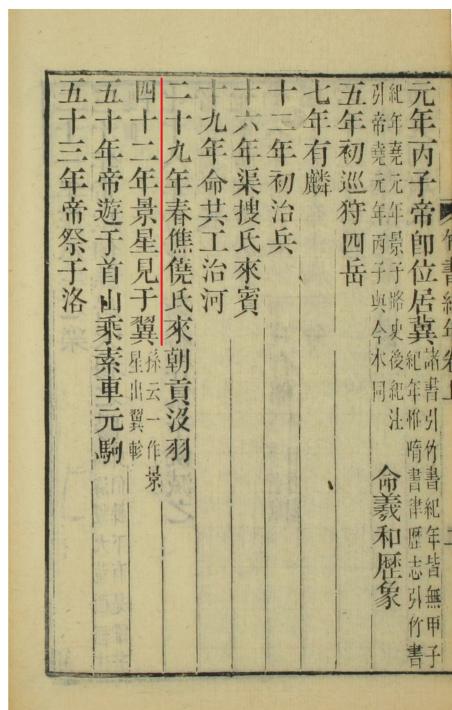 竹書紀年卷上 二
元年丙子帝即位居冀諸書引竹書紀年皆無甲子
紀年惟隋書律歷志引竹書
紀年堯元年景子路史後紀注
引帝堯元年丙子與今本同 命羲和歷象
五年初巡狩四岳
七年有麟
十二年初治兵
十六年渠搜氏來賓
十九年命共工治河
二十九年春僬僥氏來朝貢沒羽
四十二年景星見于翼孫云一作景
星出翼軫
五十年帝遊于首山乘素車元駒
五十三年帝祭于洛